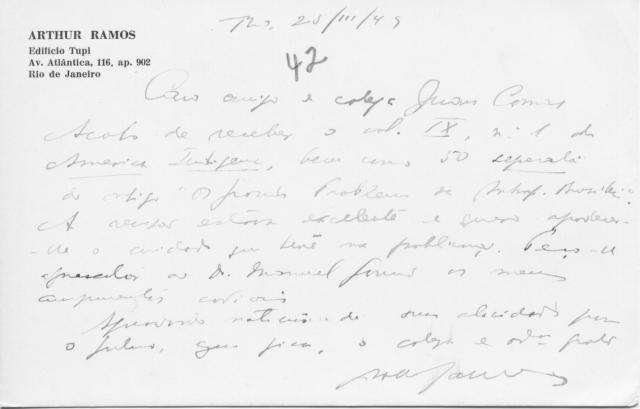 ARTHUR RAMOS
Edifício Tupi
Av. Atlântica, 116, ap. 902
Rio de Janeiro
Rio, 25/III/49
42
Caro amigo e colega Juan Comas
Acabo de receber o vol. IX, n.º 1 de
América Indígena, bem como 50 separatas
do artigo "Os grandes Problemas da Antrop. Brasileira".
A revisão estava excelente e quero agradecer-
-lhe o cuidado que teve na publicação. Peço-lhe
apresentar ao Dr. Manuel Gamio os meus
cumprimentos cordiais
notícias de suas
o colega e